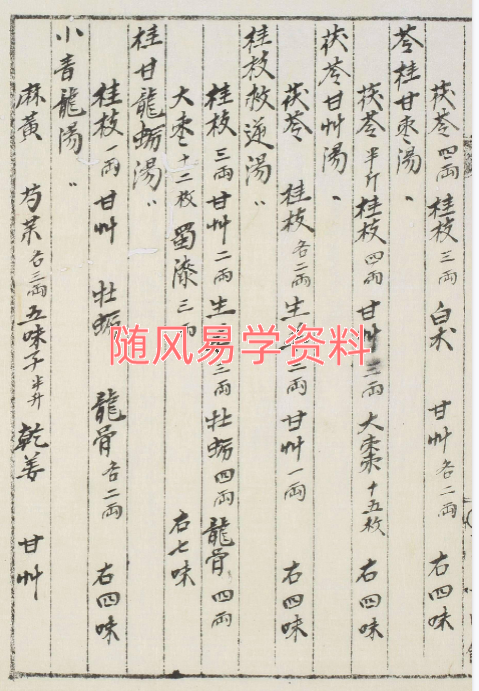 茯苓四兩 桂枝三兩 白朮 甘艸各二兩 右四味
苓桂甘枣湯〃
茯苓半斤 桂枝四兩 甘艸三兩 大棗十五枚 右四味
茯苓甘艸湯〃
茯苓 桂枝各二兩 生姜三兩 甘艸一兩 右四味
桂枝救逆湯〃
桂枝三兩 甘艸二兩 生姜三兩 牡蛎四兩 龍骨四兩
大枣十二枚 蜀漆三兩 右七味
桂甘龍蛎湯〃
桂枝一兩 甘艸 牡蛎 龍骨各二兩 右四味
小青龍湯〃
麻黃 芍茱各三兩 五味子半升 乾姜 甘艸
随风易学资料